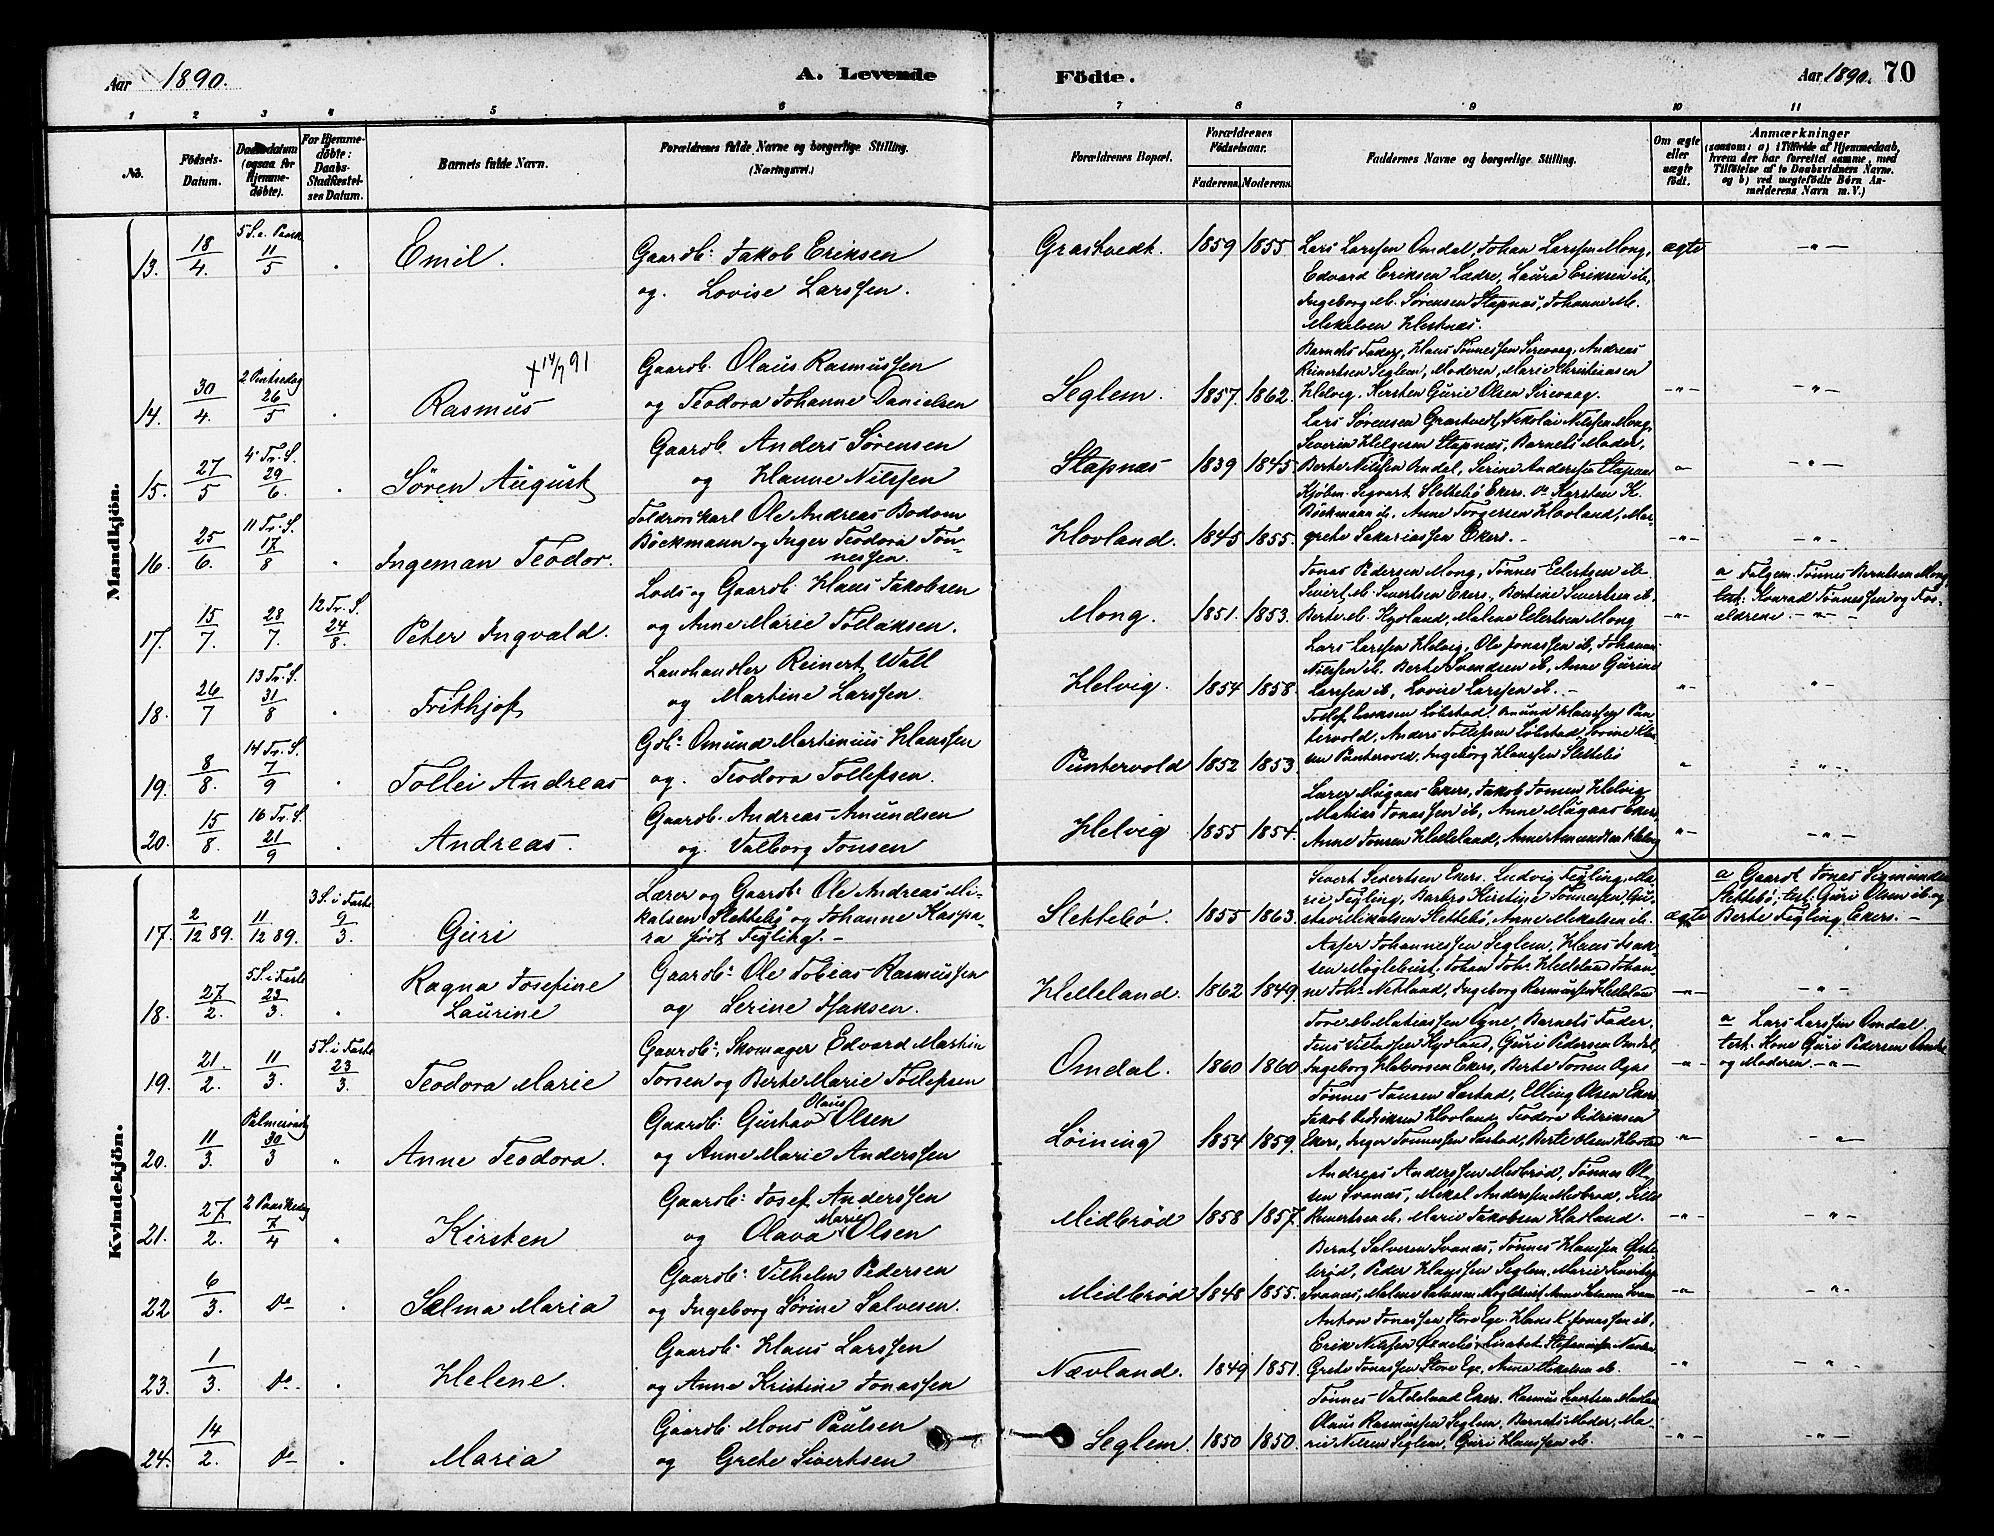 Aar 1890.
A. Levende
Födte.
Aar 1890. 70
1 2 3 4 5 6 7 8 9 10 11
No.
Födsels-Datum.
Daabsdatum (ogsaa for Hjemmedöbte).
For Hjemmedöbte: Daabs-Stadfæstelses Datum.
Barnets fulde Navn.
Forældrenes fulde Navne og borgerlige Stilling. (Næringsvei.)
Forældrenes Bopæl.
Forældrenes Födselsaar.
Faderens. Moderens.
Faddernes Navne og borgerlige Stilling.
Om ægte eller uægte födt.
Anmærkninger
(saasom: a) i Tilfælde af Hjemmedaab, hvem der har forrettet samme, med Tilföielse af to Daabsvidners Navne, og b) ved uægtefödte Börn Anmelderens Navn m. V.)
Mandkjön.
13. 18/4 5 S. e. Paask. 11/5 Emil. Gaardb: Jakob Eriksen
og Lovise Larssen.
Grastvedt. 1859 1855 Lars Larssen Omdal, Johan Larssen Mong,
Edvard Eriksen Lædre, Laura Eriksen ib,
Ingeborg M. Sørensen Stapnæs, Johanne M.
Mikalsen Hestnæs. ægte -"-
14. 30/4 2 Pintsedag 26/5 Rasmus + 14/7 91
Gaardb. Olaus Rasmussen
og Teodora Johanne Danielsen
Seglem. 1857. 1862. Barnets Fader, Klaus Tønnessen Sirevaag, Andreas
Reinertsen Seglem, Moderen, Marie Christiansen
Helvig, Kersten Gurie Olsen Sirevaag. -"- -"-
15. 27/5 4 Tr. S. 29/6. Søren August Gaardb. Anders Sørensen
og Hanne Nilssen
Stapnæs 1839 1845. Lars Sørensen Grastvedt, Nikolai Nilssen Mong,
Severin Helgesen Stapnæs, Barnets Moder,
Berte Nilssen Omdal, Serine Anderssen Stapnæs -"-
16. 25/6. 11 Tr. S. 17/8 Ingeman Teodor. Toldrorskarl Ole Andreas Bodom
Böckmann og Inger Teodora Tön-
nessen.
Hovland. 1845 1855. Kjøbm. Sigvart Slettebö Ekers. Do Karsten K.
Böckmann ib. Anne Torgersen Hovland, Mar-
grete Sakariassen Ekers. -"- -"-
17. 15/7. 28/7. 12 Tr. S. 24/8. Peter Ingvald. Lods og Gaardb. Klaus Jakobsen
og Anne Marie Tollaksen.
Mong. 1851. 1853. Jonas Pedersen Mong, Tønnes Eilertsen ib.
Sivert M. Sivertsen Ekers, Bertine Sivertsen ib,
Berte M. Kydland, Malene Eilertsen Mong -"-
a Følgem. Tønnes Berntsen Mong
test: Konrad Tønnessen og For-
ældrene. -"-
18. 26/7 13 Tr. S. 31/8 Frithjof Landhandler Reinert Wall
og Martine Larssen.
Helvig. 1854 1858. Lars Larssen Helvig, Ole Jonassen ib, Johanne
Nilssen ib. Berte Svendsen ib, Anne Gurine
Larssen ib, Lovise Larssen ib. -"- -"-
19. 8/8. 14 Tr. S. 7/9 Tollei Andreas Gdb: Omund Martinius Klaussen
og Teodora Tollefsen.
Puntervold 1852 1853. Tollef Eriksen Löbstad, Omund Klaussen Pun-
tervold, Anders Tollefsen Löbstad,
Puntervold, Ingeborg Klaussen Slettebö " -"-
20. 15/8 16 Tr. S. 21/9 Andreas. Gaardb. Andreas Amundsen
og Valborg Jonsen
Helvig 1855 1854. Lærer Mugaas Ekers, Jakob Jonsen Helvig
Matias Jonassen ib, Anne Mugaas Ekers,
Anne Jonsen Helleland, Anne Amundsen Helvig -"- -"-
Kvindekjön.
17. 2/12 89. 11/12 89. 3 S. i Faste 9/3. Guri Lærer og Gaardb: Ole Andreas Mi-
kalsen Slettebö og Johanne Kaspa-
ra født Fegling.
Slettebø. 1855 1863. Sivert Sivertsen Ekers. Ludvig Fegling, Ma-
rie Fegling, Barbro Kirstine Tønnessen, Gu-
stav Mikalsen Slettebö, Anne Mikalsen ib. ægte
a Gaardb. Jonas Sigmundsen
Slettebö, test: Guri Olsen ib. og
Berte Fegling Ekers. -
18. 27/2. 5 S. i Faste 23/3. Ragna Josefine
Laurine Gaardb: Ole Tobias Rasmussen
og Serine Isaksen.
Helleland. 1862 1849 Asser Johannessen Seglem, Klaus Isak-
sen Möglebust. Johan Joh: Helleland Johan-
ne Joh: Netland, Ingeborg Rasmussen Helleland -"- -"-
19. 21/2. 11/3. 5 S. i Faste 23/3. Teodora Marie Gaardb:, Skomager Edvard Martin
Torsen og Berte Marie Tollefsen
Omdal. 1860 1860 Tore M. Matiassen Ogne, Barnets Fader,
Jens Kydland, Guri Pedersen Omdal,
Ingeborg Halvorsen Ekers, Berte Torsen Ogne -"-
a Lars Larssen Omdal
test: Kone Guri Pedersen Omdal
og Moderen. -"-
20. 11/3. Palmesønd. 30/3 Anne Teodora. Gaardb: Gustav Olaus Olsen
og Anne Marie Anderssen
Løining 1854 1859. Tønnes Jansen Sæstad, Elling Olsen Ekers
Jakob Hovland, Teodora Didriksen
Ekers, Inger Tønnessen Sæstad, Berte Olsen Hovland -"- -"-
21. 27/2. 2 Paaskedag 7/4 Kirsten Gaardb: Josef Anderssen
og Olava Marie Olsen
Midbrød 1858 1857. Andreas Anderssen Midbrød, Tønnes Ol-
sen Svanæs, Mikal Anderssen Midbrød,
Reinertsen ib. Marie Jakobsen Havland. -"- -"-
22 6/3. Do Selma Maria Gaardb: Vilhelm Pedersen
og Ingeborg Sørine Salvesen.
Midbrød 1848 1855. Bernt Salvesen Svanæs, Tønnes Klaussen
brød, Peder Klaussen Seglem, Marie
Svanæs, Malene -"- -"-
23. 1/3. Do Helene. Gaardb: Klaus Larssen
og Anne Kristine Jonassen
Nævland. 1849 1851. Anton Jonassen Store Ege. Hans K. Jonassen ib,
Erik Nilssen
Grete Jonassen Store Ege, Anne ib. " "
24. 14/2. Do Maria Gaardb. Mons Paulsen
og Grete Sivertsen
Seglem. 1850 1850. Tønnes Vatleland Ekers. Rasmus
Olaus Rasmussen Seglem, Barnets Moder, Ma-
rie Nilsen Seglem, Guri Klaussen ib. -"- -"-